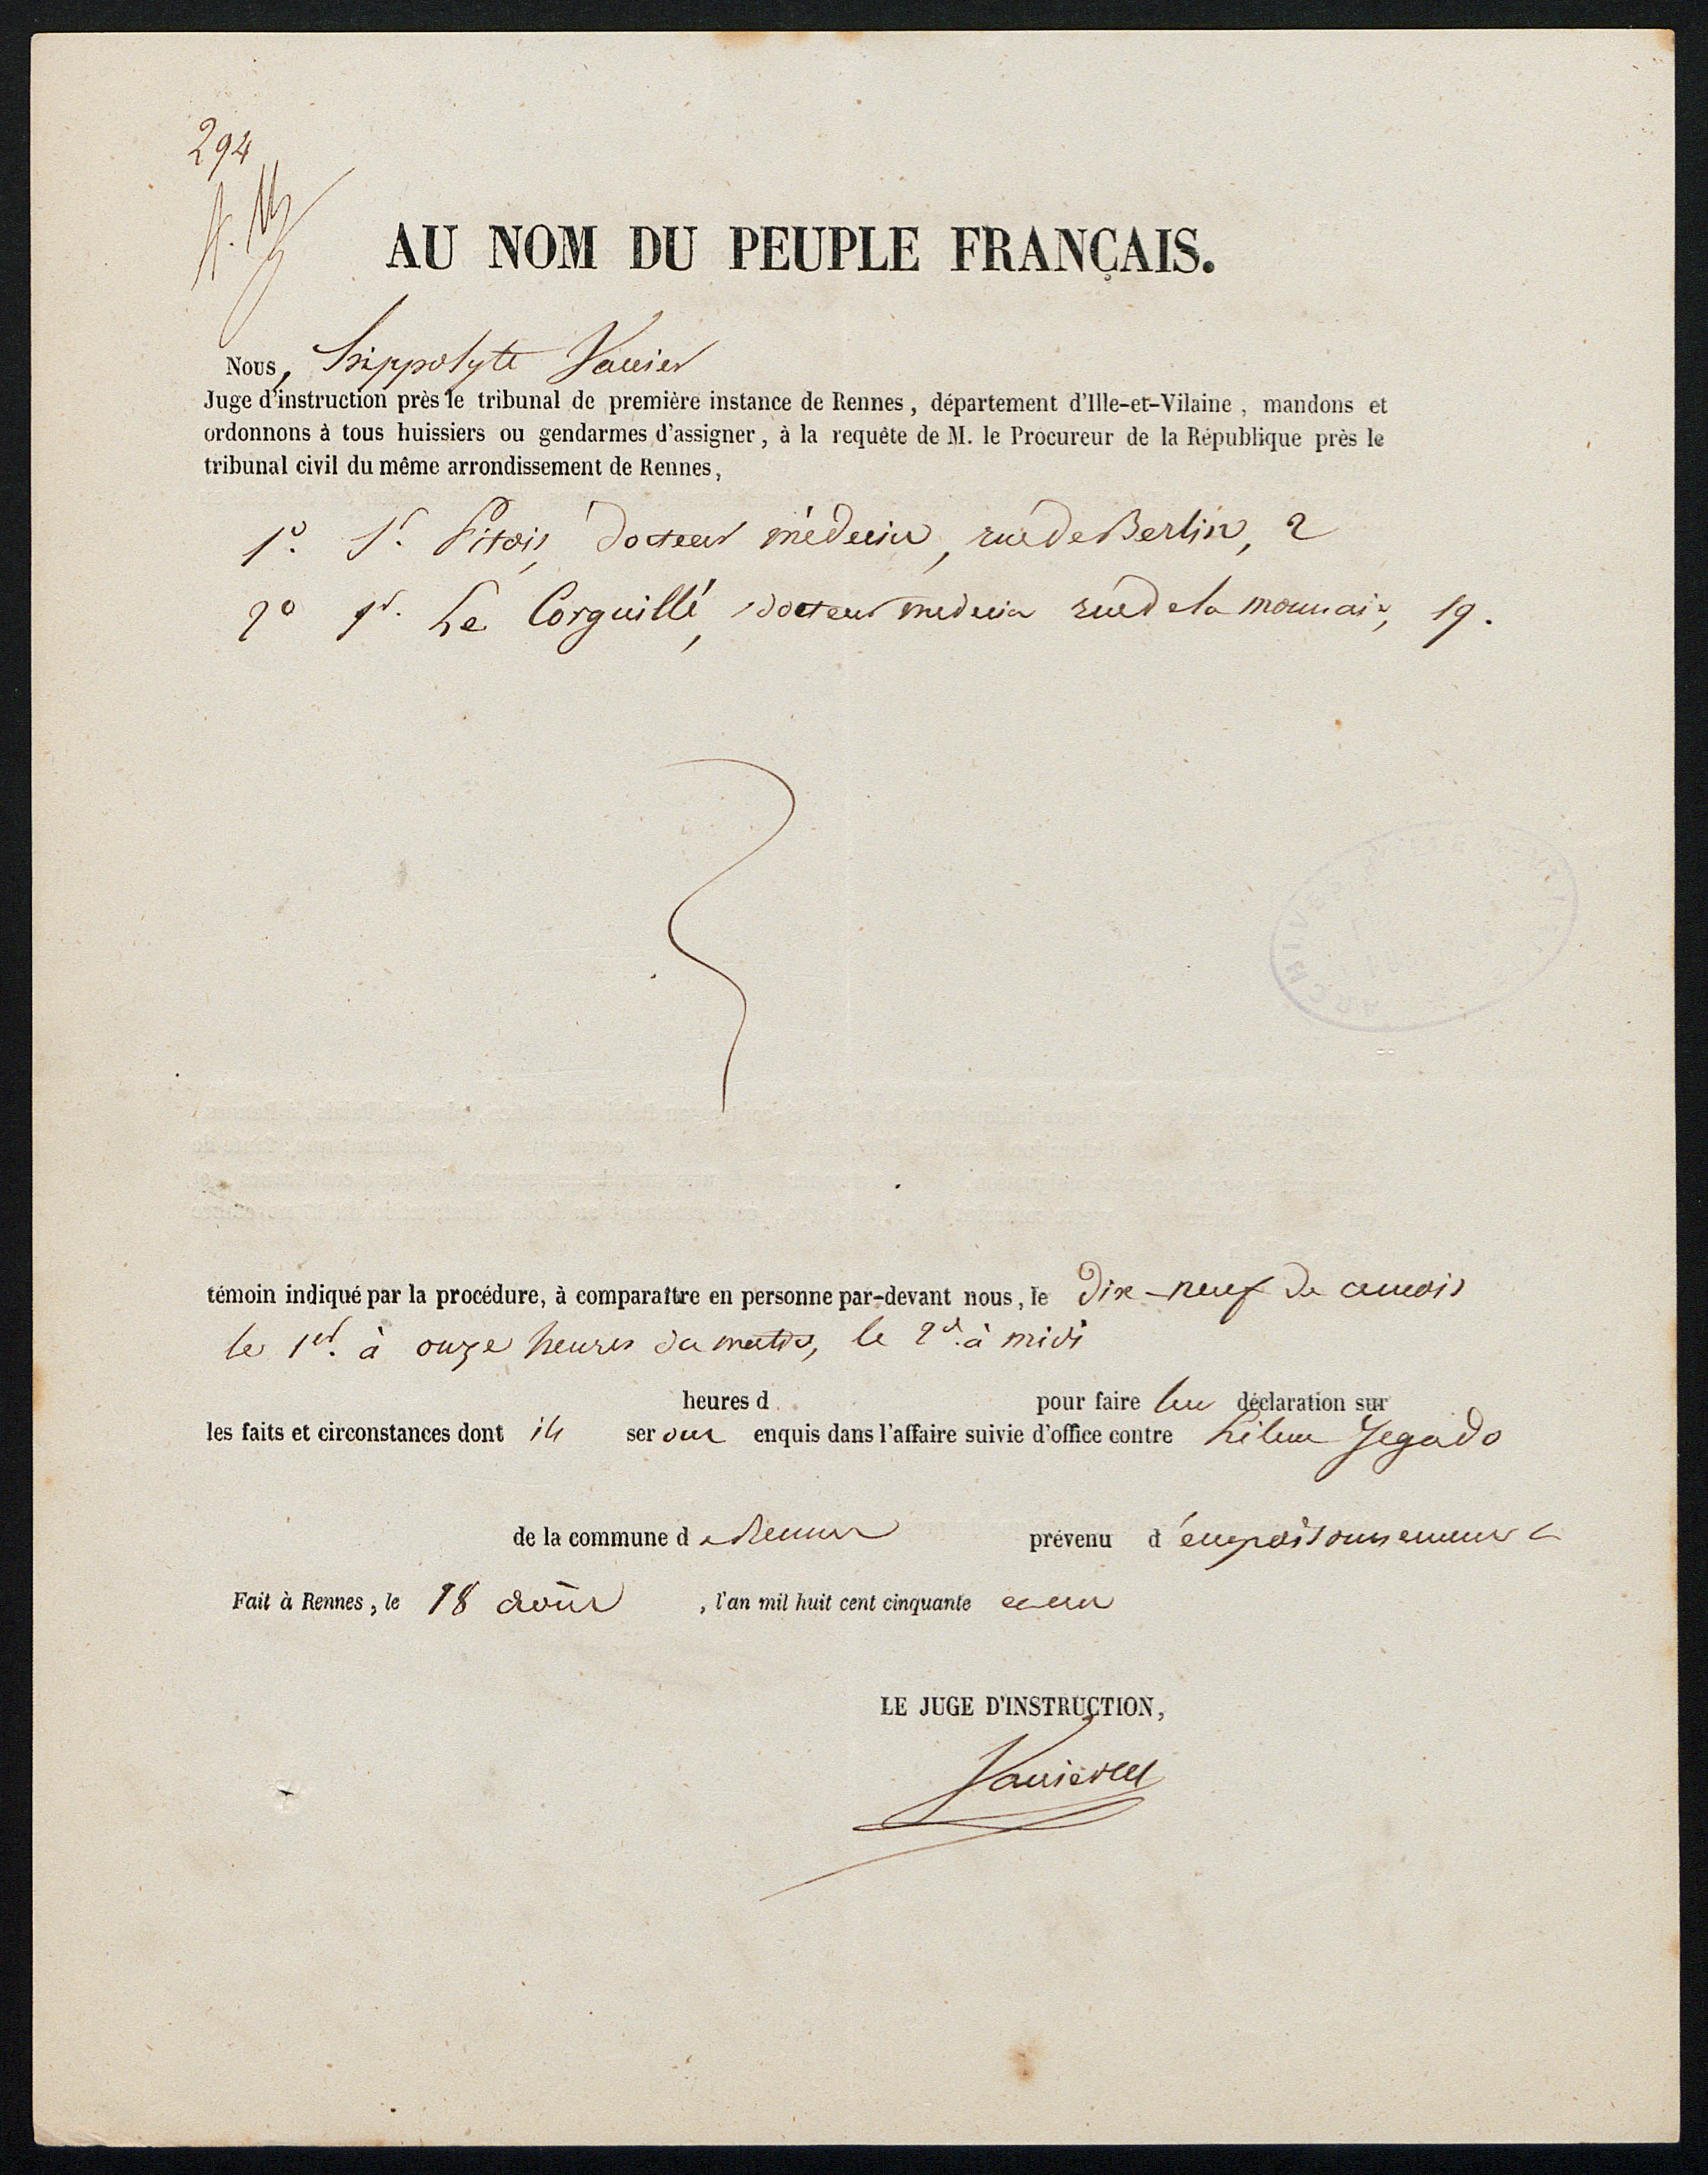 294
AU NOM DU PEUPLE FRANÇAIS.
Nous, hippolyte Vannier
Juge d'instruction près le tribunal de première instance de Rennes, département d'Ille-et-Vilaine, mandons et
ordonnons à tous huissiers ou gendarmes d'assigner, à la requête de M. le Procureur de la République près le
tribunal civil du même arrondissement de Rennes,
1° Sr. Pitois, docteur médecin, rue de Berlin, 2
2° Sr. Le Corguillé, docteur medecin rue de la monnaie, 19.
témoin indiqué par la procédure, à comparaître en personne par-devant nous, le dix-neuf de ce mois
le 1er. à onze heures du matin, le 2d. à midi
heures d pour faire leur déclaration sur
les faits et circonstances dont ils seront enquis dans l'affaire suivie d'office contre hélène Jegado
de la commune de Rennes prévenu d'empoisonnement
Fait à Rennes, le 18 août, l'an mil huit cent cinquante et un
LE JUGE D'INSTRUCTION,